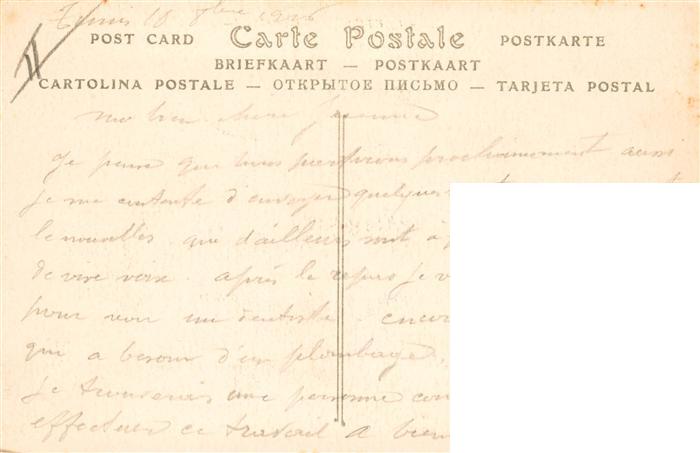 Tunis 18 8bre 1906
II
POST CARD Carte Postale POSTKARTE
BRIEFKAART — POSTKAART
CARTOLINA POSTALE — ОТКРЫТОЕ ПИСЬМО — TARJETA POSTAL
ma bien chère
Je pense que nous prochainement aussi
je me contente d'envoyer quelques
de nouvelles que d'ailleurs
de vive voix. après le repas je v
pour voir un dentiste. encor
qui a besoin d'un plombage.
je trouverais une personne con
effectuer ce travail a bien